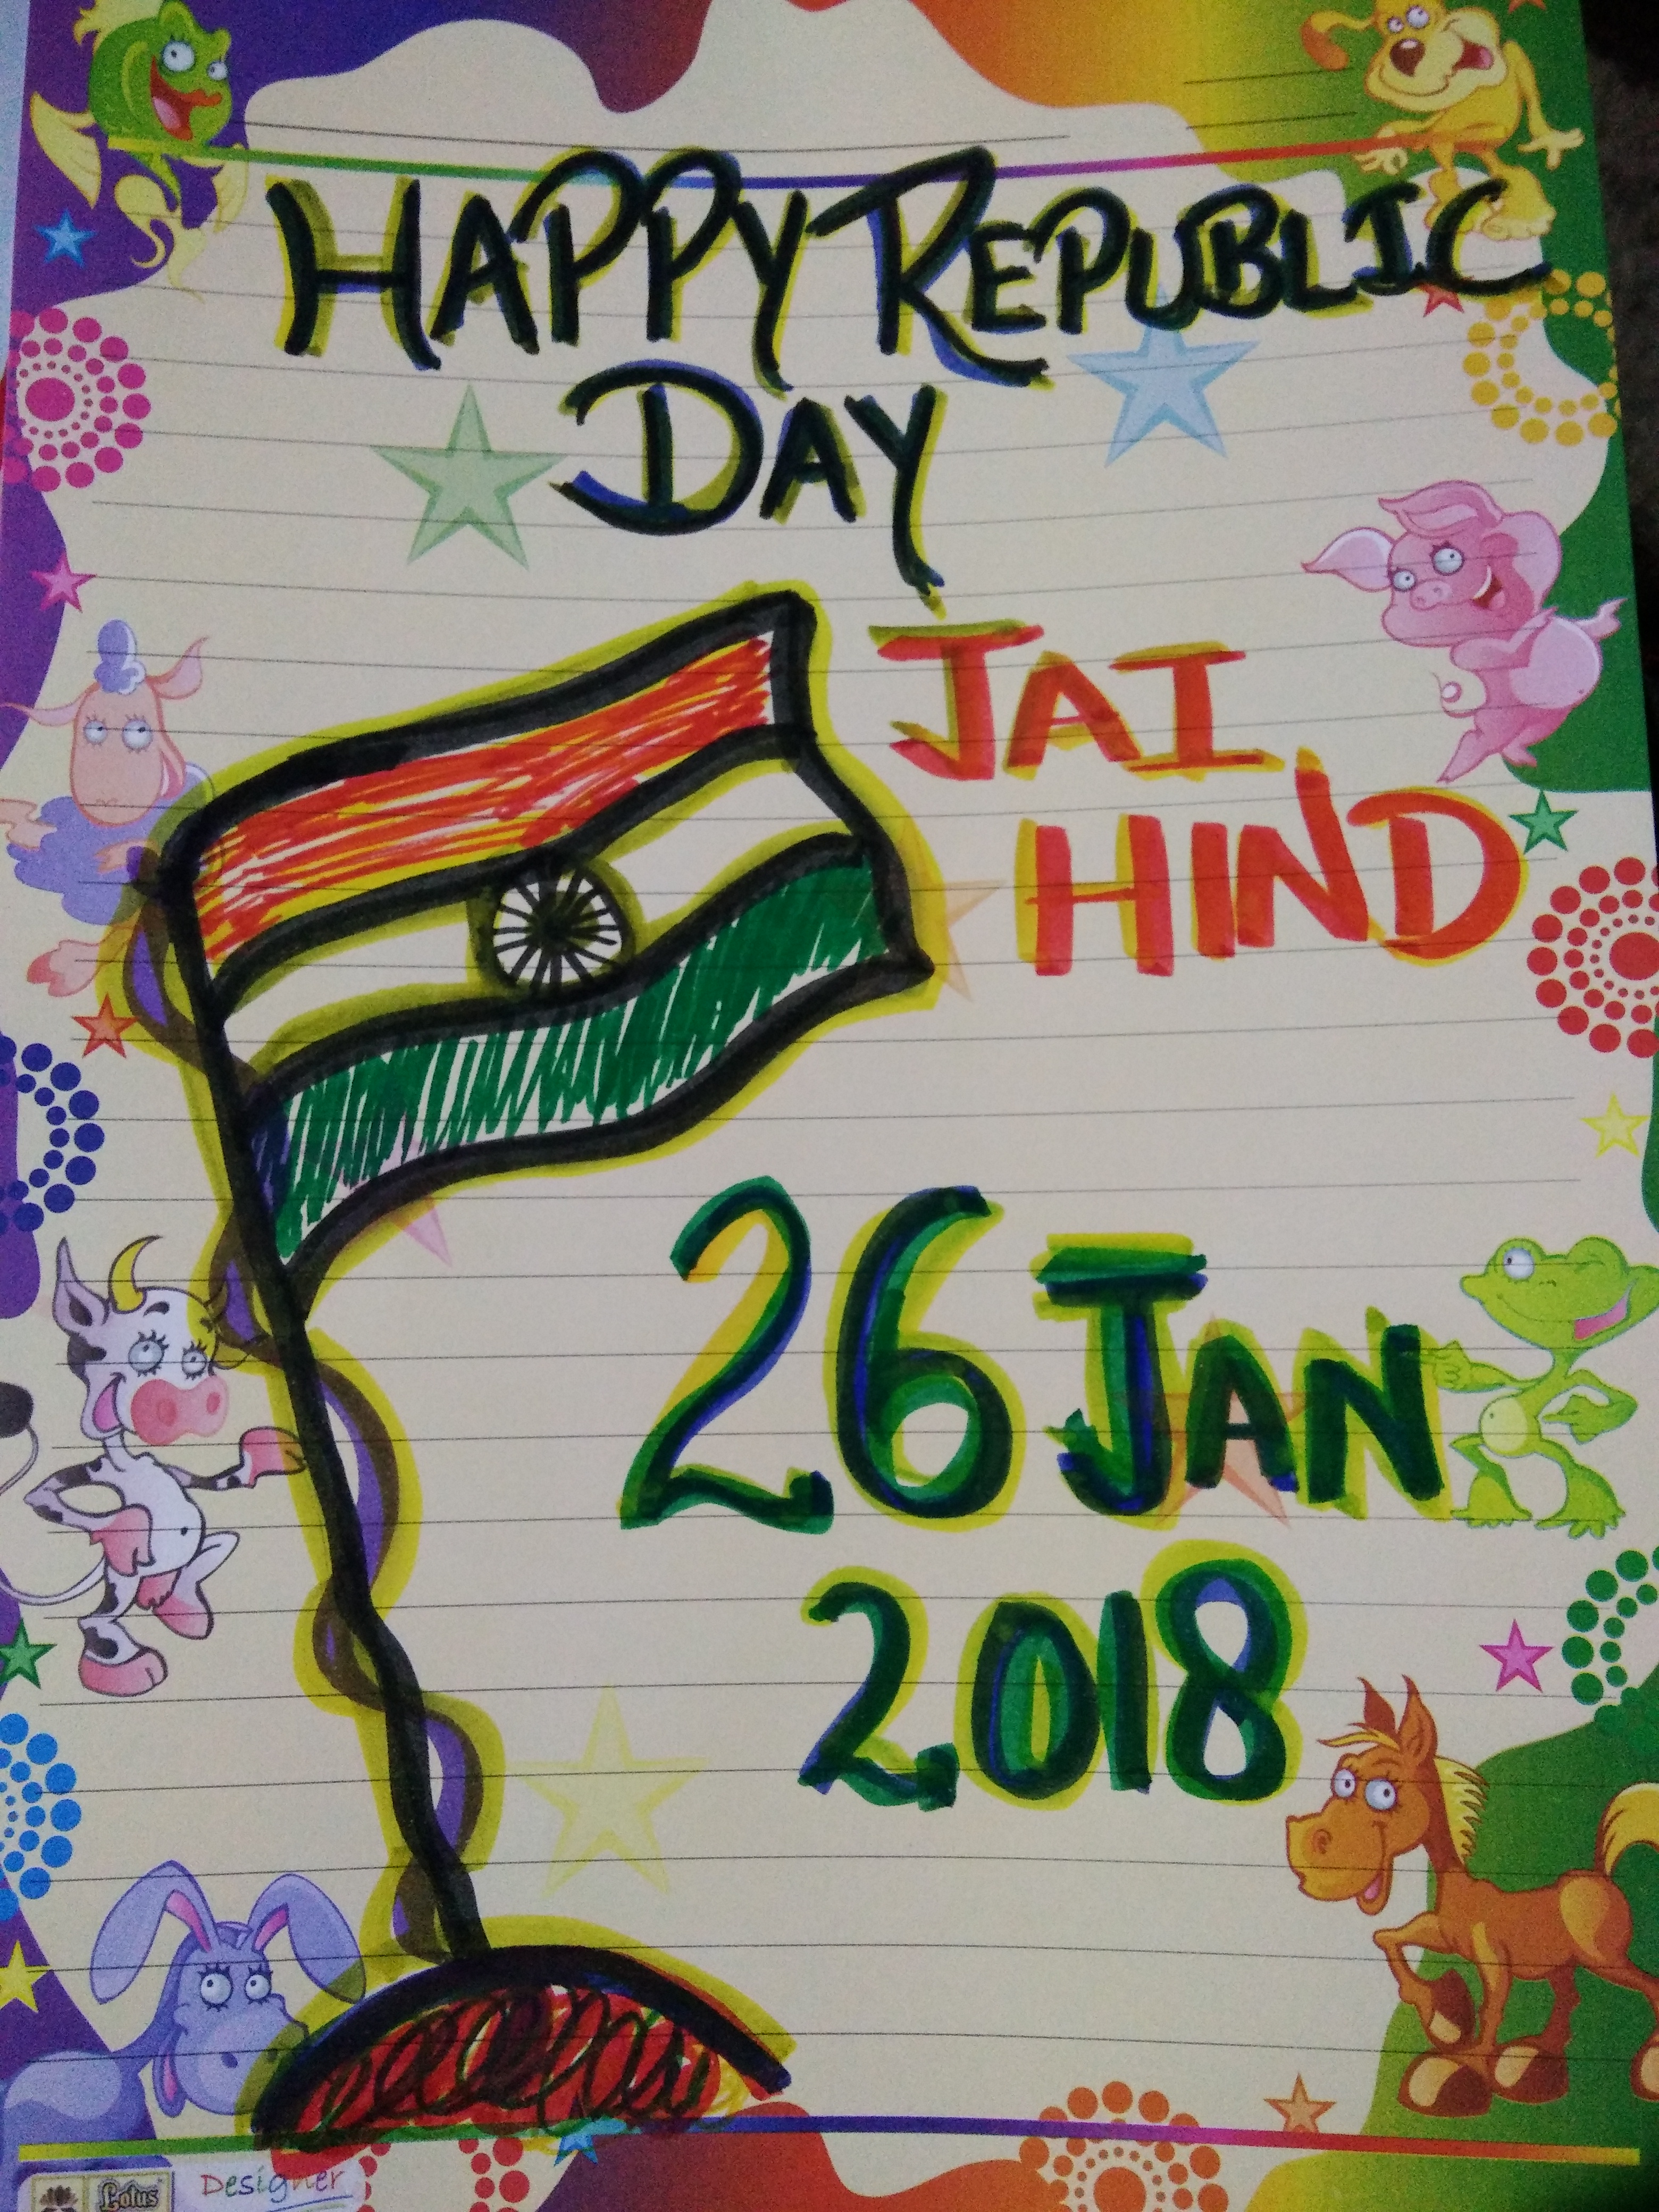 HAPPY REPUBLIC
DAY
JAI
HIND
26 JAN
2018
Lotus Designer